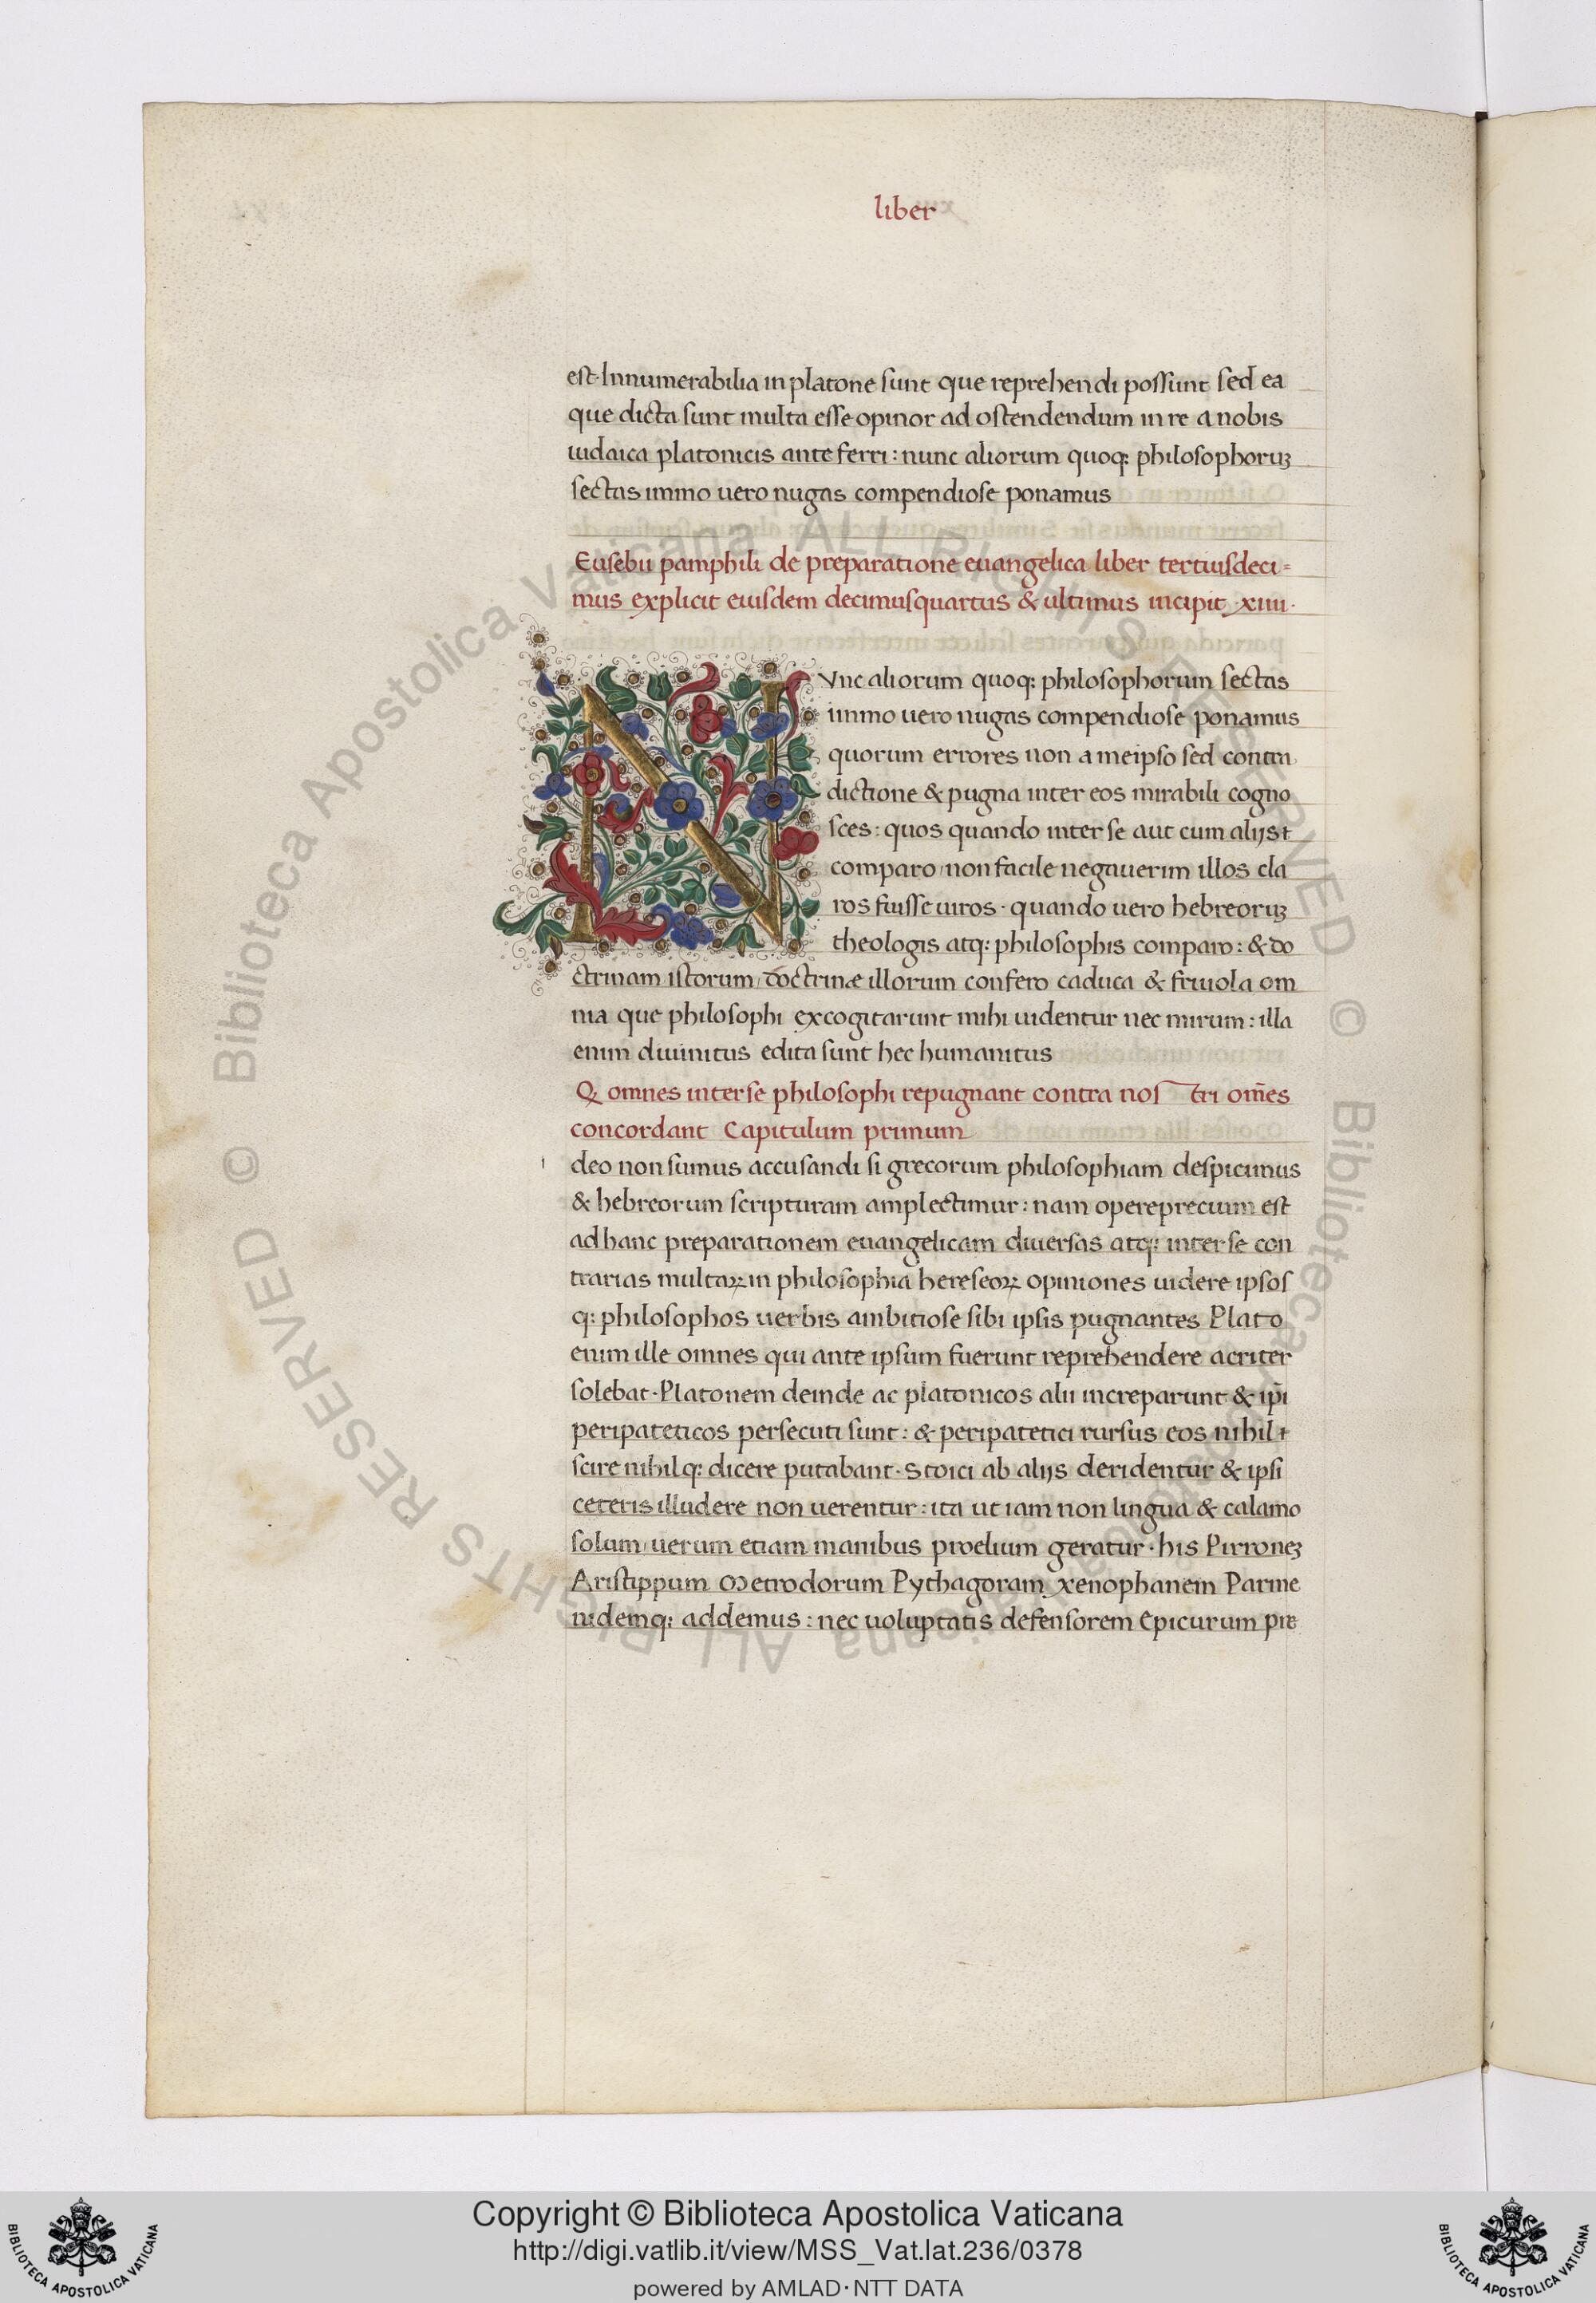 liber
est·Innumerabilia in platone sunt que reprehendi possunt sed ea
que dicta sunt multa esse opinor ad ostendendum in re a nobis
iudaica platonicis anteferri: nunc aliorum quoq; philosophoruʒ
sectas immo uero nugas compendiose ponamus
Eusebii pamphili de preparatione euangelica liber tertiusdeci=
mus explicit eiusdem decimusquartus & ultimus incipit ·xiiii·
NVnc aliorum quoq; philosophorum sectas
immo uero nugas compendiose ponamus
quorum errores non a meipso sed contra
dictione & pugna inter eos mirabili cogno
sces: quos quando inter se aut cum alijs
comparo non facile negauerim illos cla
ros fuisse uiros· quando uero hebreoruʒ
theologis atq; philosophis comparo: & do
ctrinam istorum doctrinæ illorum confero caduca & friuola om
nia que philosophi excogitarunt mihi uidentur nec mirum: illa
enim diuinitus edita sunt hec humanitus
Q omnes inter se philosophi repugnant contra nostri om̄es
concordant Capitulum primum
i deo non sumus accusandi si grecorum philosophiam despicimus
& hebreorum scripturam amplectimur: nam opereprecium est
ad hanc preparationem euangelicam diuersas atq; inter se con
trarias multaꝝ in philosophia hereseoꝝ opiniones uidere ipsos
q; philosophos uerbis ambitiose sibi ipsis pugnantes Plato
enim ille omnes qui ante ipsum fuerunt reprehendere acriter
solebat·Platonem deinde ac platonicos alii increparunt & ip̄i
peripateticos persecuti sunt: & peripatetici rursus eos nihil
scire nihilq; dicere putabant·Stoici ab alijs deridentur & ipsi
ceteris illudere non uerentur: ita ut iam non lingua & calamo
solum uerum etiam manibus proelium geratur·his Pirroneʒ
Aristippum Metrodorum Pythagoram xenophanem Parme
nidemq; addemus: nec uoluptatis defensorem Epicurum pre
Copyright © Biblioteca Apostolica Vaticana
http://digi.vatlib.it/view/MSS_Vat.lat.236/0378
powered by AMLAD·NTT DATA
© Biblioteca Apostolica Vaticana ALL RIGHTS RESERVED
© Biblioteca Apostolica Vaticana ALL RIGHTS RESERVED
BIBLIOTECA APOSTOLICA VATICANA
BIBLIOTECA APOSTOLICA VATICANA